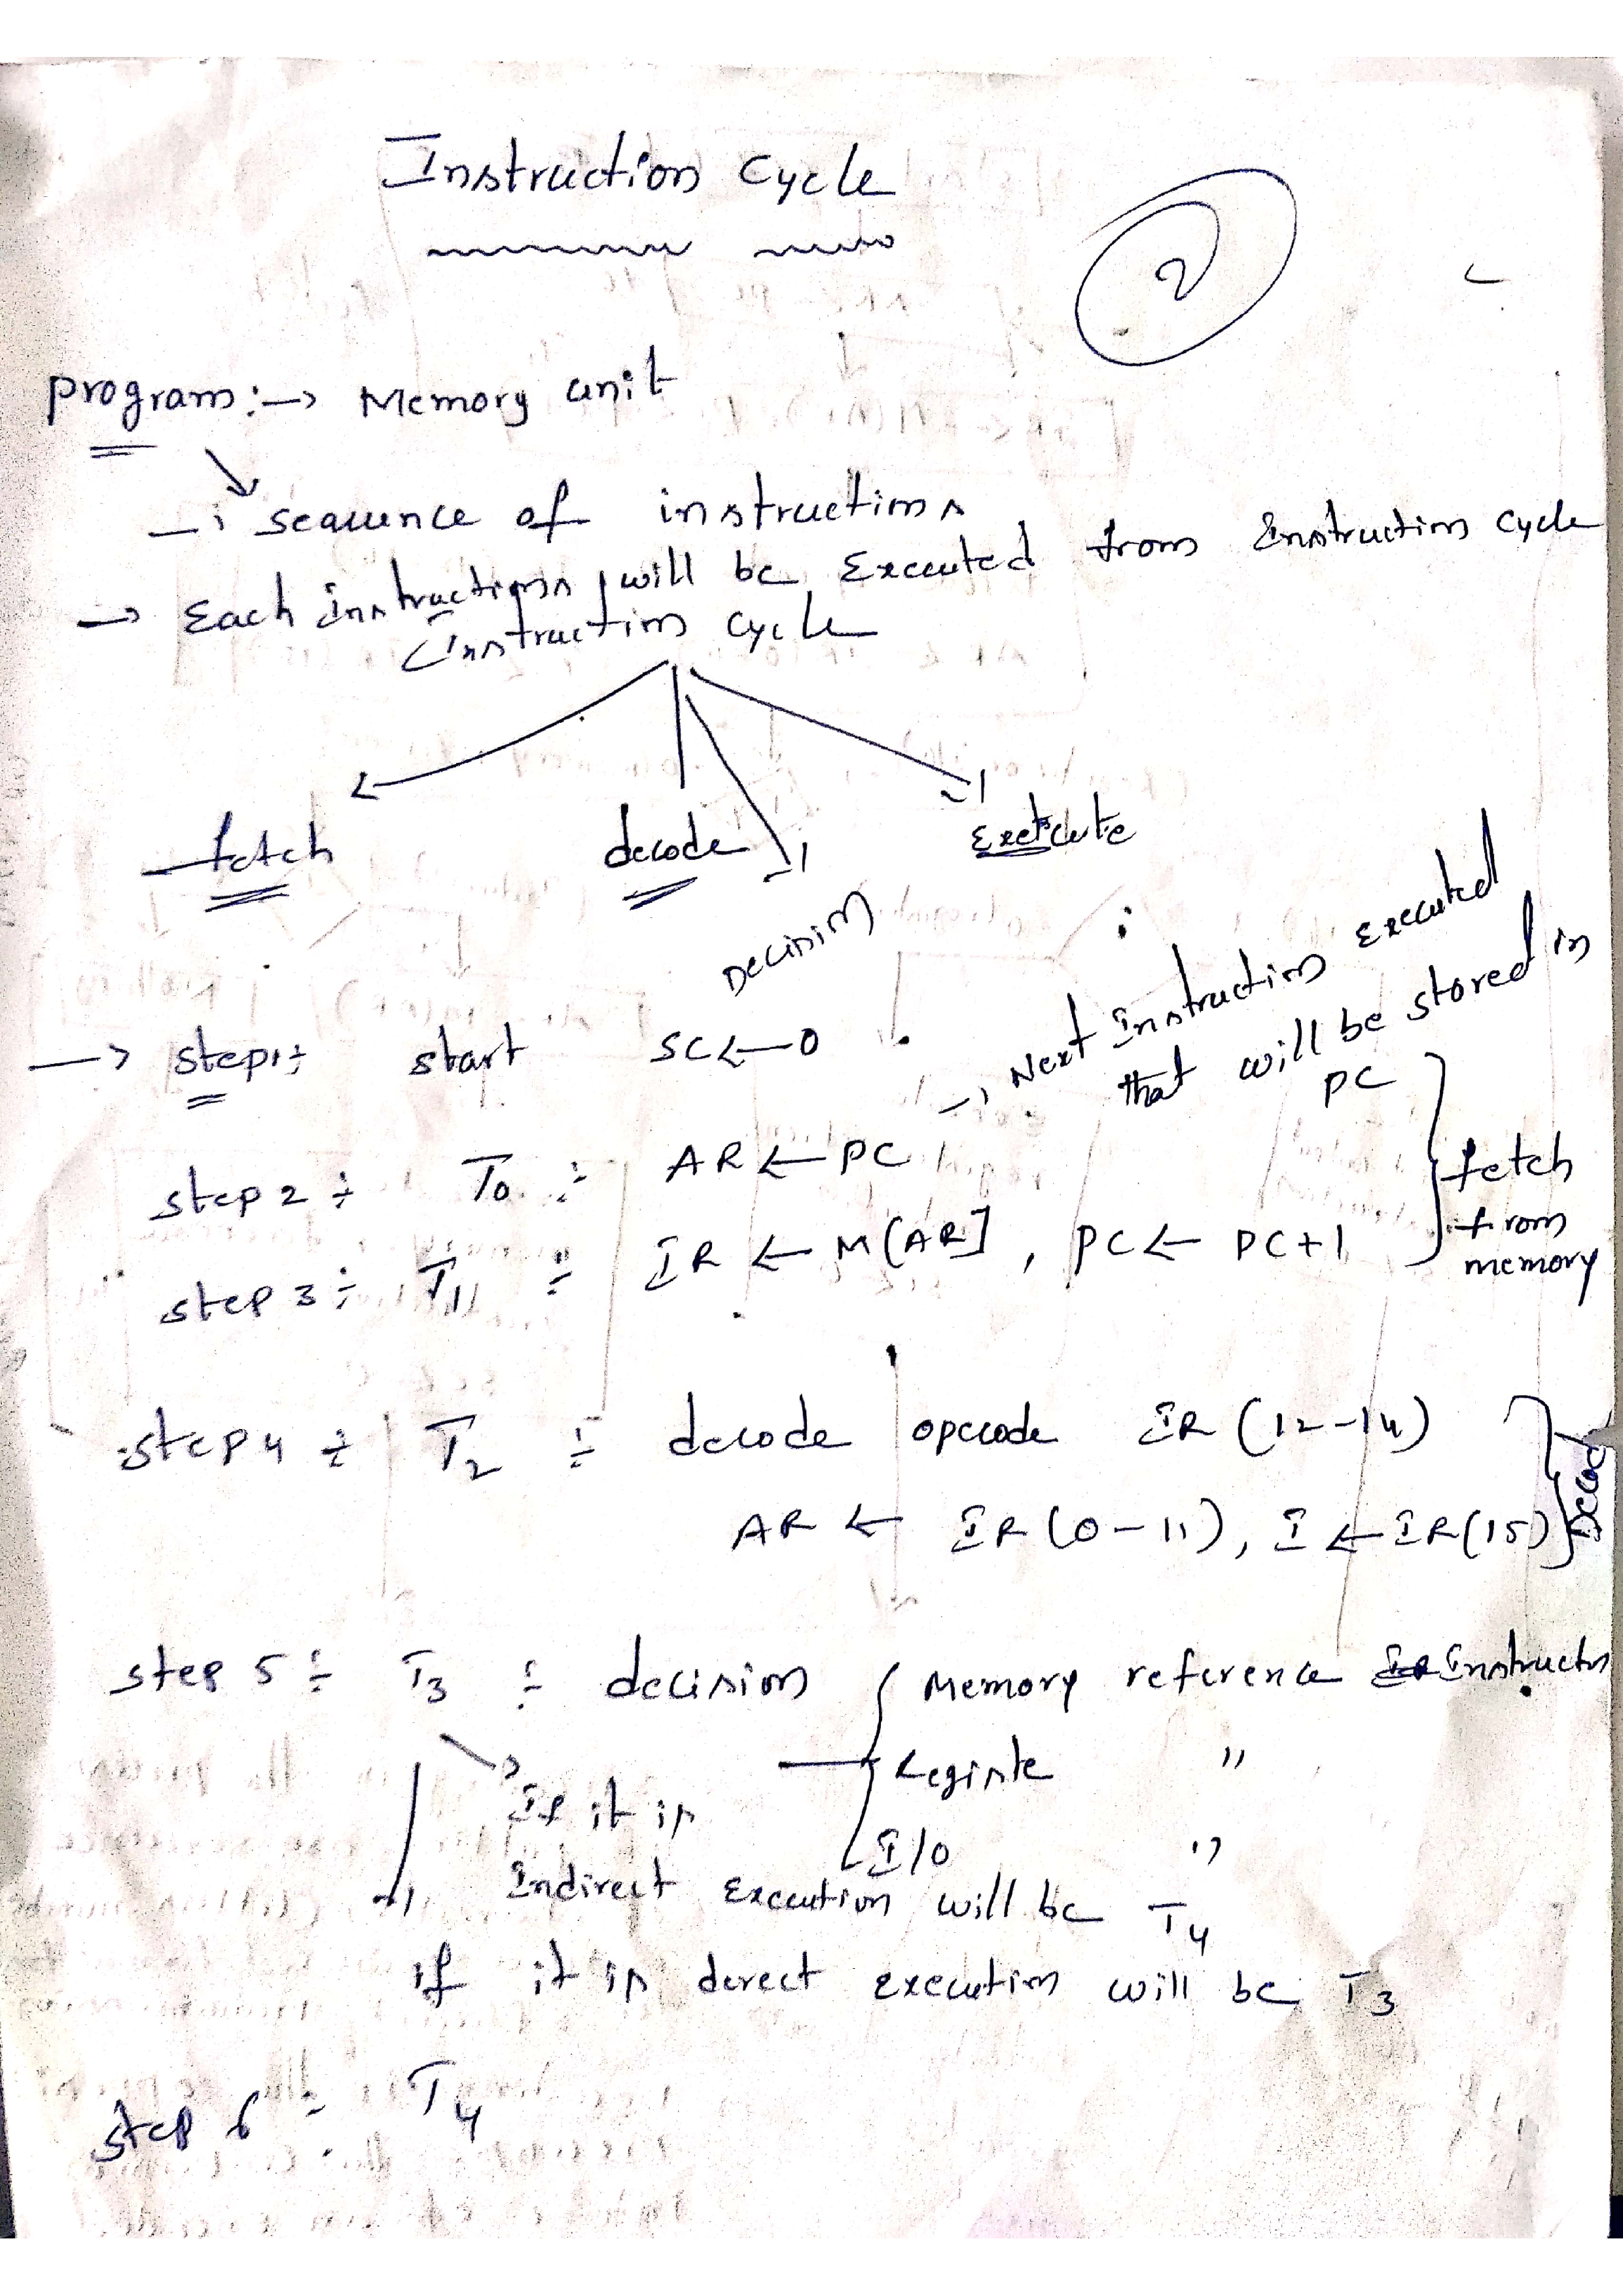 Instruction Cycle
2
program :→ Memory unit
→ seauence of instructions
→ Each instructions will be Executed from Instruction cycle
Instruction cycle
fetch decode Decision Execute
→ step1: start SC←0
→ Next Instruction executed
that will be stored in
PC
step 2 : T0 : AR ← PC
step 3 : T1 : IR ← M[AR] , PC ← PC+1
fetch
from
memory
step 4 : T2 : decode opcode IR (12-14)
AR ← IR (0-11), I ← IR(15)
Decode
step 5 : T3 : decision Memory reference Instructn
Registe "
If it is
I/O "
Indirect Execution will be T4
if it is derect execution will be T3
step 6 : T4